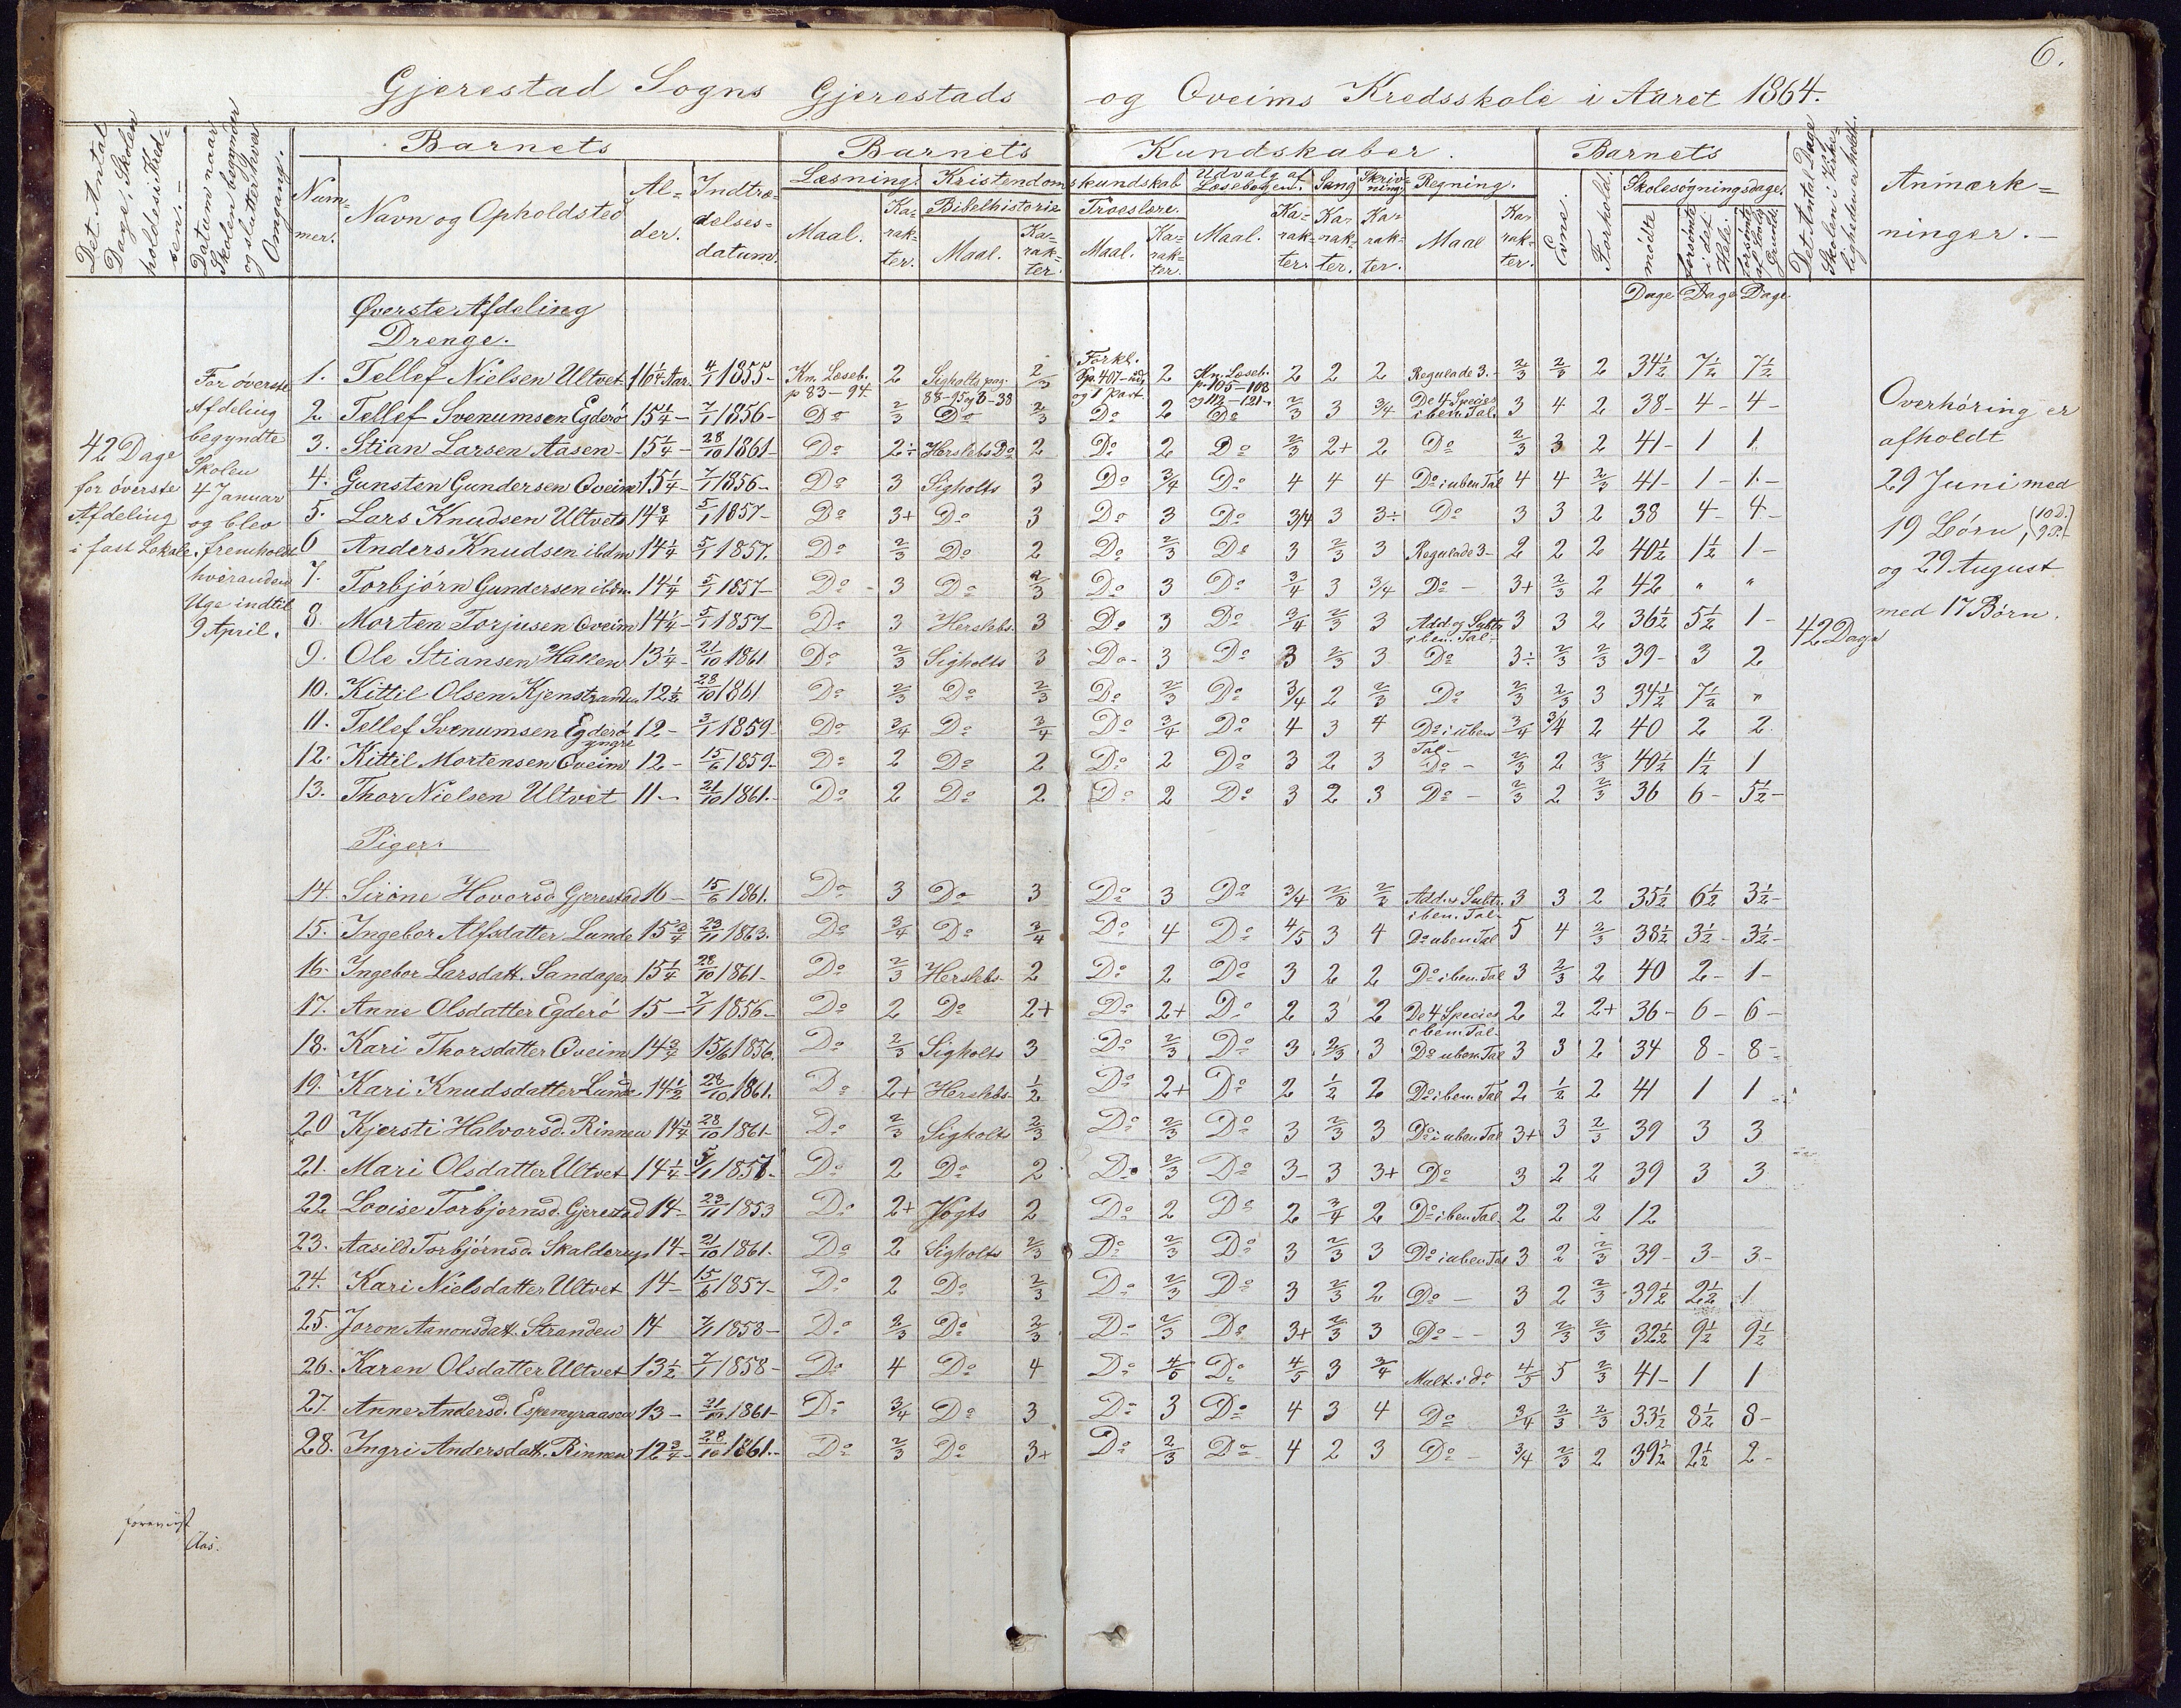 6.
Gjerestad Sogns Gjerestads og Oveims Kredsskole i Aaret 1864.
Det Antal Dage, Skolen holdes i Kredsen.
Datum naar Skolen begynder og slutter hver Omgang.
Barnets
Nummer.
Navn og Opholdsted
Alder.
Indtrædelsesdatum.
Barnets Kundskaber.
Læsning. Kristendomskundskab Udvalg af Læsebogen. Sang Skrivning Regning.
Bibelhistorie Troeslære.
Maal. Karakter. Maal. Karakter. Maal. Karakter. Maal. Karakter. Karakter. Karakter. Maal Karakter.
Barnets
Evne. Forhold. Skolesøgningsdage.
mödte forsömte i det Hele. forsömte af Lovlig Grund.
Det Antal Dage Skolen i Virkeligheden er holdt.
Anmærkninger.
Dage Dage Dage.
Øverste Afdeling
Drenge.
42 Dage for överste Afdeling i fast Lokale.
For överste Afdeling begyndte Skolen 4 Januar og blev fremholdt hveranden Uge indtil 9 April.
1. Tellef Nielsen Ultvet 16 1/4 Aar. 4/1 1855- Kn. Læseb. p 83-94. 2 Sigholts pag. 88-95 og 8-38 2/3 Forkl. Sp. 407- og 1 Part. 2 Kn. Læseb. p. 105-108 og 112-121. 2 2 2 Regulade 3.- 2/3 2/3 2 34 1/2 7 1/2 7 1/2
2. Tellef Svenumsen Egderö 15 1/4 - 7/1 1856- Do 2/3 Do 3 Do 2 Do 2/3 3 3/4 De 4 Species i ben. Tal. 3 4 2 38- 4- 4-
3. Stian Larsen Aasen- 15 1/4 - 28/10 1861- Do 2÷ Herslebs Do 2 Do 2 Do 2/3 2+ 2 Do 2/3 3 2 41- 1 1.
4. Gunsten Gundersen Oveim 15 1/4 - 7/1 1856- Do 3 Sigholts 3 Do 3/4 Do 4 4 4 Do i uben Tal 4 4 2/3 41- 1- 1.-
5. Lars Knudsen Ultvet 14 3/4 5/1 1857- Do 3+ Do 3 Do 3 Do 3/4 3 3÷ Do 3 3 2 38 4- 4-
6 Anders Knudsen ibdm 14 1/4 5/1 1857. Do 2/3 Do 2 Do 2/3 Do 3 2/3 3 Regulade 3- 2 2 2 40 1/2 1 1/2 1-
7. Torbjörn Gundersen ibdm 14 1/4 5/1 1857- Do - 3 Do 2/3 Do 3 Do 3/4 3 3/4 Do - 3+ 2/3 2 42 " "
8. Morten Torjusen Oveim 14 1/4 - 5/1 1857- Do 3 Herslebs. 3 Do 3 Do 3/4 2/3 3 Add. og Subtr. i ben. Tal. 3 3 2 36 1/2 5 1/2 1-
42 Dage
9. Ole Stiansen Haken 13 1/4 - 21/10 1861 Do 2/3 Sigholts 3 Do- 3 Do 3 2/3 3 Do 3÷ 2/3 2/3 39- 3 2
10. Kittil Olsen Kjenstranden 12 1/2 28/10 1861 Do 2/3 Do 2/3 Do 2/3 Do 3/4 2 2/3 Do 2/3 2/3 3 34 1/2 7 1/2 "
11. Tellef Svenumsen Egderö yngre 12- 3/1 1859- Do 3/4 Do 3/4 Do 3/4 Do 4 3 4 Do i uben Tal- 3/4 3/4 2 40 2 2.
12. Kittil Mortensen Oveim 12- 15/6 1859- Do 2 Do 2 Do 2 Do 3 2 3 Do - 2/3 2 2/3 40 1/2 1 1/2 1
13. Thor Nielsen Ultvet 11- 21/10 1861.- Do 2 Do 2 Do 2 Do 3 2 3 Do - 2/3 2 2/3 36 6- 5 1/2 -
Overhöring er afholdt
29 Juni med
19 Börn, (10 D. 9 P.)
og 29 August
med 17 Börn.
Piger.
14. Sirone Hovorsd. Gjerestad 16- 15/6 1861. Do 3 Do 3 Do 3 Do 3/4 2/3 2/3 Add. og Subtr. i ben. Tal- 3 3 2 35 1/2 6 1/2 3 1/2 -
15. Ingebor Alfsdatter Lunde 15 3/4 23/11 1863. Do 3/4 Do 3/4 Do 4 Do 4/5 3 4 Do uben Tal 5 4 2/3 38 1/2 3 1/2 - 3 1/2 -
16. Ingebor Larsdatt. Sandager 15 1/4 28/10 1861- Do 2/3 Herslebs- 2 Do 2 Do 3 2 2 Do i ben Tal 3 2/3 2 40 2- 1-
17. Anne Olsdatter Egderö 15- 7/1 1856- Do 2 Do 2+ Do 2+ Do 2 3 2 De 4 Species i ben Tal- 2 2 2+ 36- 6- 6-
18. Kari Thorsdatter Oveim 14 3/4 15/6 1856. Do 2/3 Sigholts 3 Do 2/3 Do 3 2/3 3 Do uben Tal 3 3 2 34 8- 8-
19. Kari Knudsdatter Lunde 14 1/2 28/10 1861. Do 2+ Herslebs- 1/2 Do 2+ Do 2 1/2 2 Do i ben Tal 2 1/2 2 41 1 1
20 Kjersti Halvorsd. Rinnen 14 1/4 28/10 1861- Do 2/3 Sigholts 2/3 Do 2/3 Do 3 2/3 3 Do i uben Tal 3+ 3 2/3 39 3 3
21. Mari Olsdatter Ultvet 14 1/4 - 5/1 1857- Do 2 Do 2 Do 2/3 Do 3- 3 3+ Do 3 2 2 39 3 3
22 Lovise Torbjornsd. Gjerestad 14- 23/11 1853 Do 2+ Vogts 2 Do 2 Do 2 3/4 2 Do i ben Tal. 2 2 2 12
23. Aasild Torbjörnsd. Skalderup 14- 21/10 1861. Do 2 Sigholts 2/3 Do 2/3 Do 3 2/3 3 Do i uben Tal 3 2 2/3 39- 3- 3-
24. Kari Nielsdatter Ultvet 14- 15/6 1857- Do 2 Do 2/3 Do 2/3 Do 3 2/3 2 Do - 3 2 2/3 39 1/2 2 1/2 1
25. Joron Aanonsdatt. Stranden 14 7/1 1858- Do 2/3 Do 2/3 Do 2/3 Do 3+ 2/3 3 Do - - 3 2/3 2/3 32 1/2 9 1/2 9 1/2
26. Karen Olsdatter Ultvet 13 1/2 7/1 1858- Do 4 Do 4 Do 4/5 Do 4/5 3 3/4 Mult. i do 4/5 5 2/3 41- 1 1
27. Anne Andersd. Espemyraasen 13- 21/10 1861- Do 3/4 Do 3 Do 3 Do 4 3 4 Do 3/4 2/3 2/3 33 1/2 8 1/2 8-
28. Ingri Andersdatt. Rinnen 12 3/4 - 28/10 1861.- Do 2/3 Do 3+ Do 2/3 Do 4 2 3 Do - 3/4 2/3 2 39 1/2 2 1/2 2-
foreviist